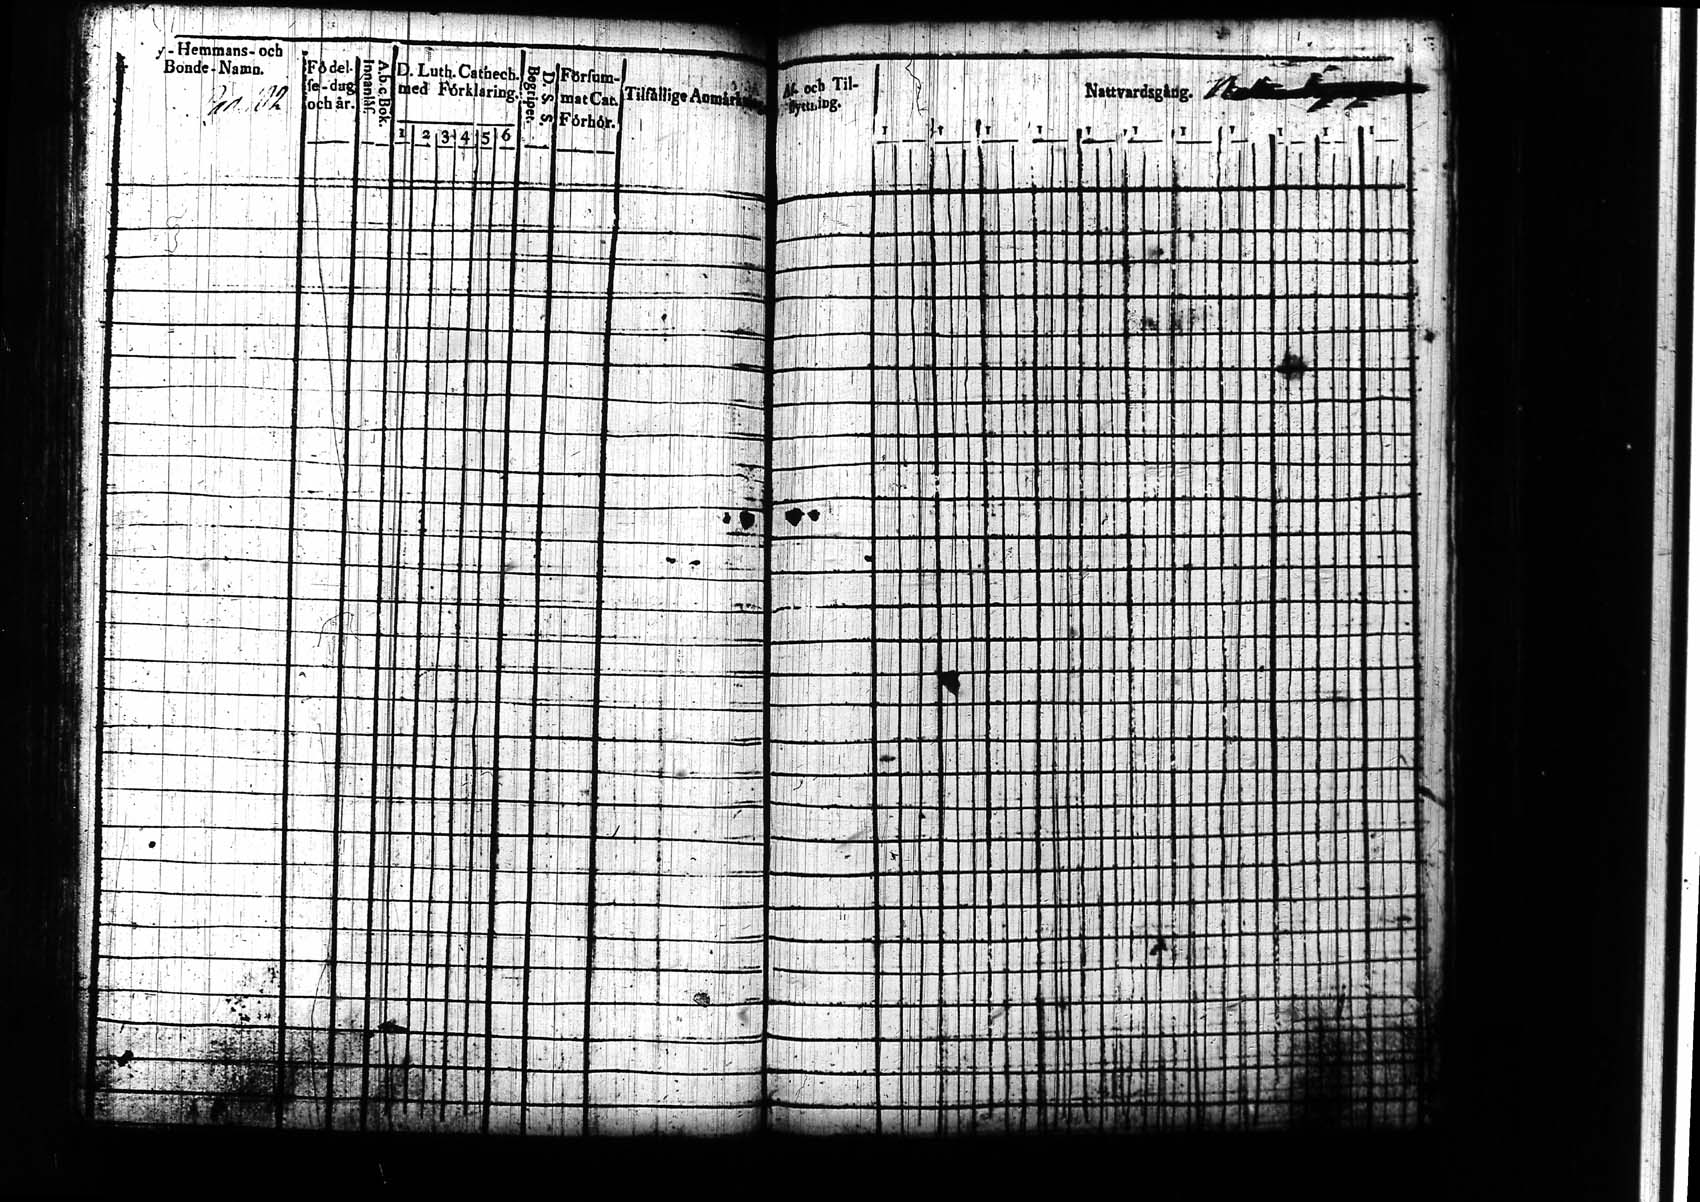 y-Hemmans- och
Bonde-Namn.
Födel-
se-dag
och år.
Innanläs.
A.b.c. Bok.
D. Luth. Cathech.
med Förklaring.
1 2 3 4 5 6
Begripet.
D. S. S.
Försum-
mat Cat.
Förhör.
Tilfällige Anmärkning
Af- och Til-
flyttning.
Nattvardsgång.
1 1 1 1 1 1 1 1 1 1 1